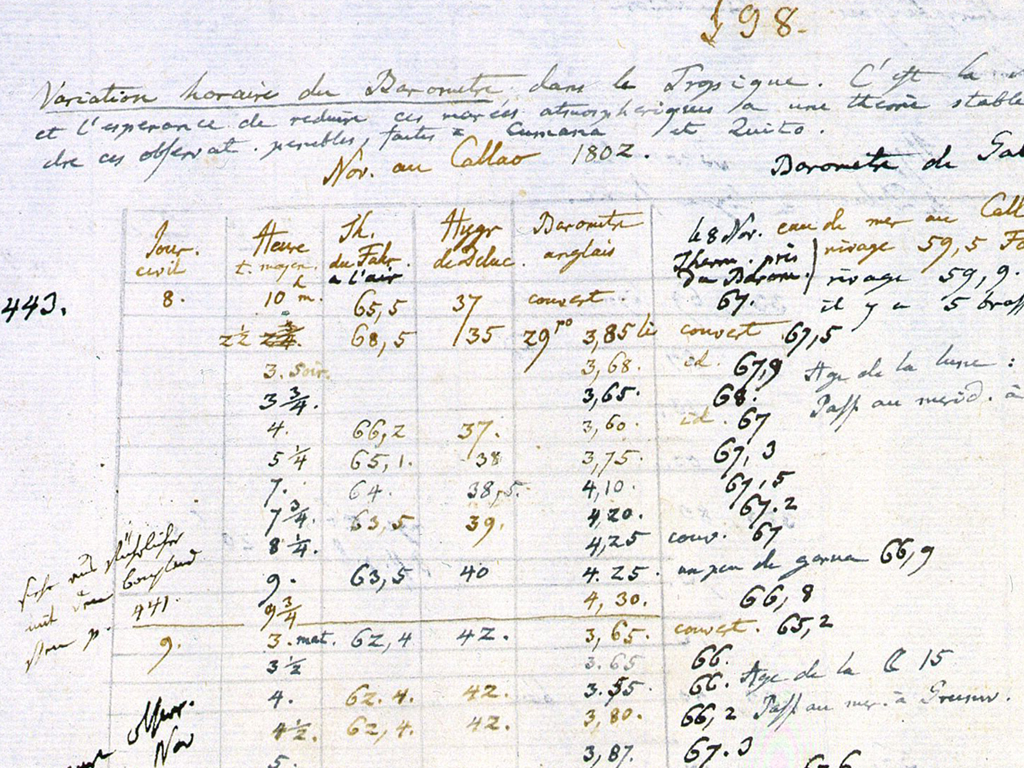 198.
Variation horaire du Barometre dans le Tropique. C'est la
et l'esperance de reduire ces marées atmospheriques a une theorie stable
dre ces observat. penibles, faites a Cumana et Quito.
Nov. au Callao 1802. Barometre de Gal
Jour. civil Heure t. moyen. Th. du Fahr. a l'air Hygr de Deluc. Barometre anglais le 8 Nov. Therm. près du Barom. eau de mer au Call
rivage 59,5 Fa
rivage 59,9.
443. 8. 10 h m. 65,5 37 couvert 67. il y a 5 brass
2 ½ 68,5 35 29 po 3,85 li couvert 67,5
3. soir. 3,68. id. 67,9 Age de la lune :
3 ¾. 3,65. 68. Pass au merid. à
4. 66,2 37. 3,60. id. 67
5 ¼ 65,1. 38 3,75. 67,3
7. 64. 38,5. 4,10. 67,5
7 ¾. 63,5 39. 4,20. 67.2
8 ¼. 4,25 couv. 67
9. 63,5 40 4.25. un peu de garua 66,9
9 ¾ 4,30. 66,8
mit dem Bonpland
p. 441.
9. 3. mat. 62,4 42. 3,65. couvert. 65,2
3 ½ 3.65 66.
4. 62.4. 42. 3.55. 66. Age de la ☾ 15
4 ½. 62,4. 42. 3,80. 66,2 Pass au mer. à Greenw.
5. 3,87. 67.3
Observ.
Nov
67.6